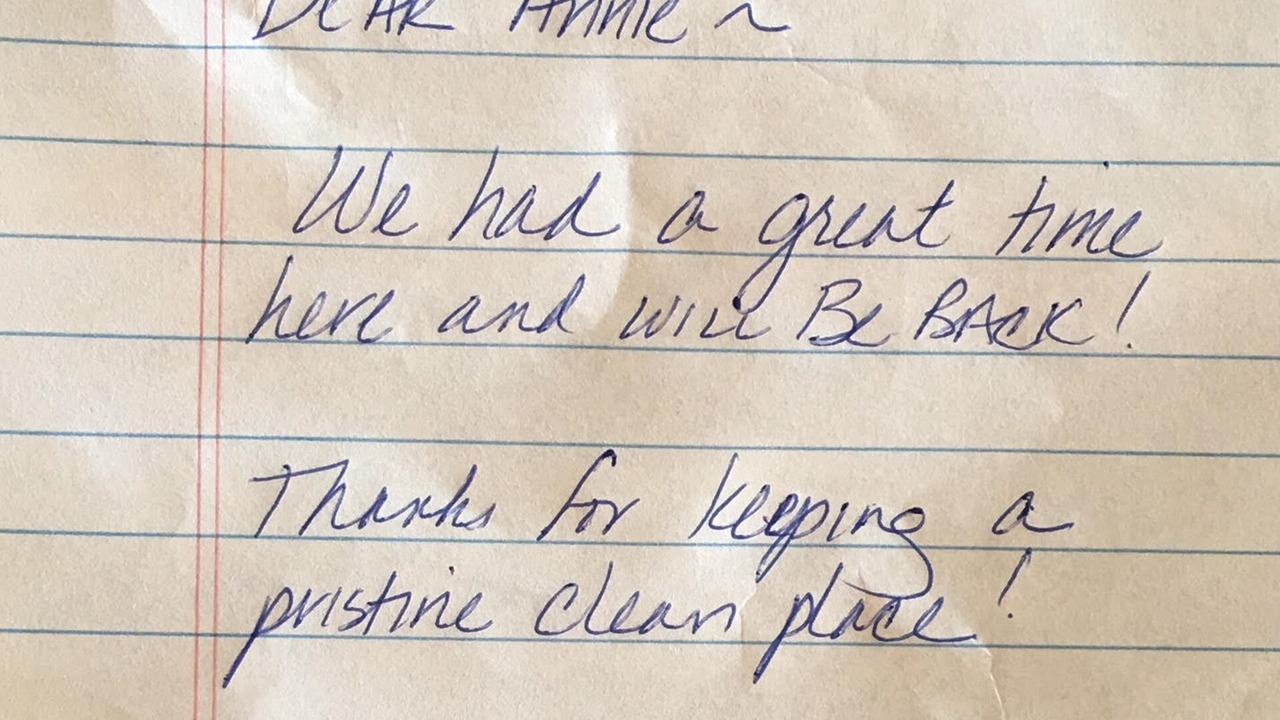 Dear Annie ~
We had a great time
here and will Be BAck!
Thanks for keeping a
pristine clean place!